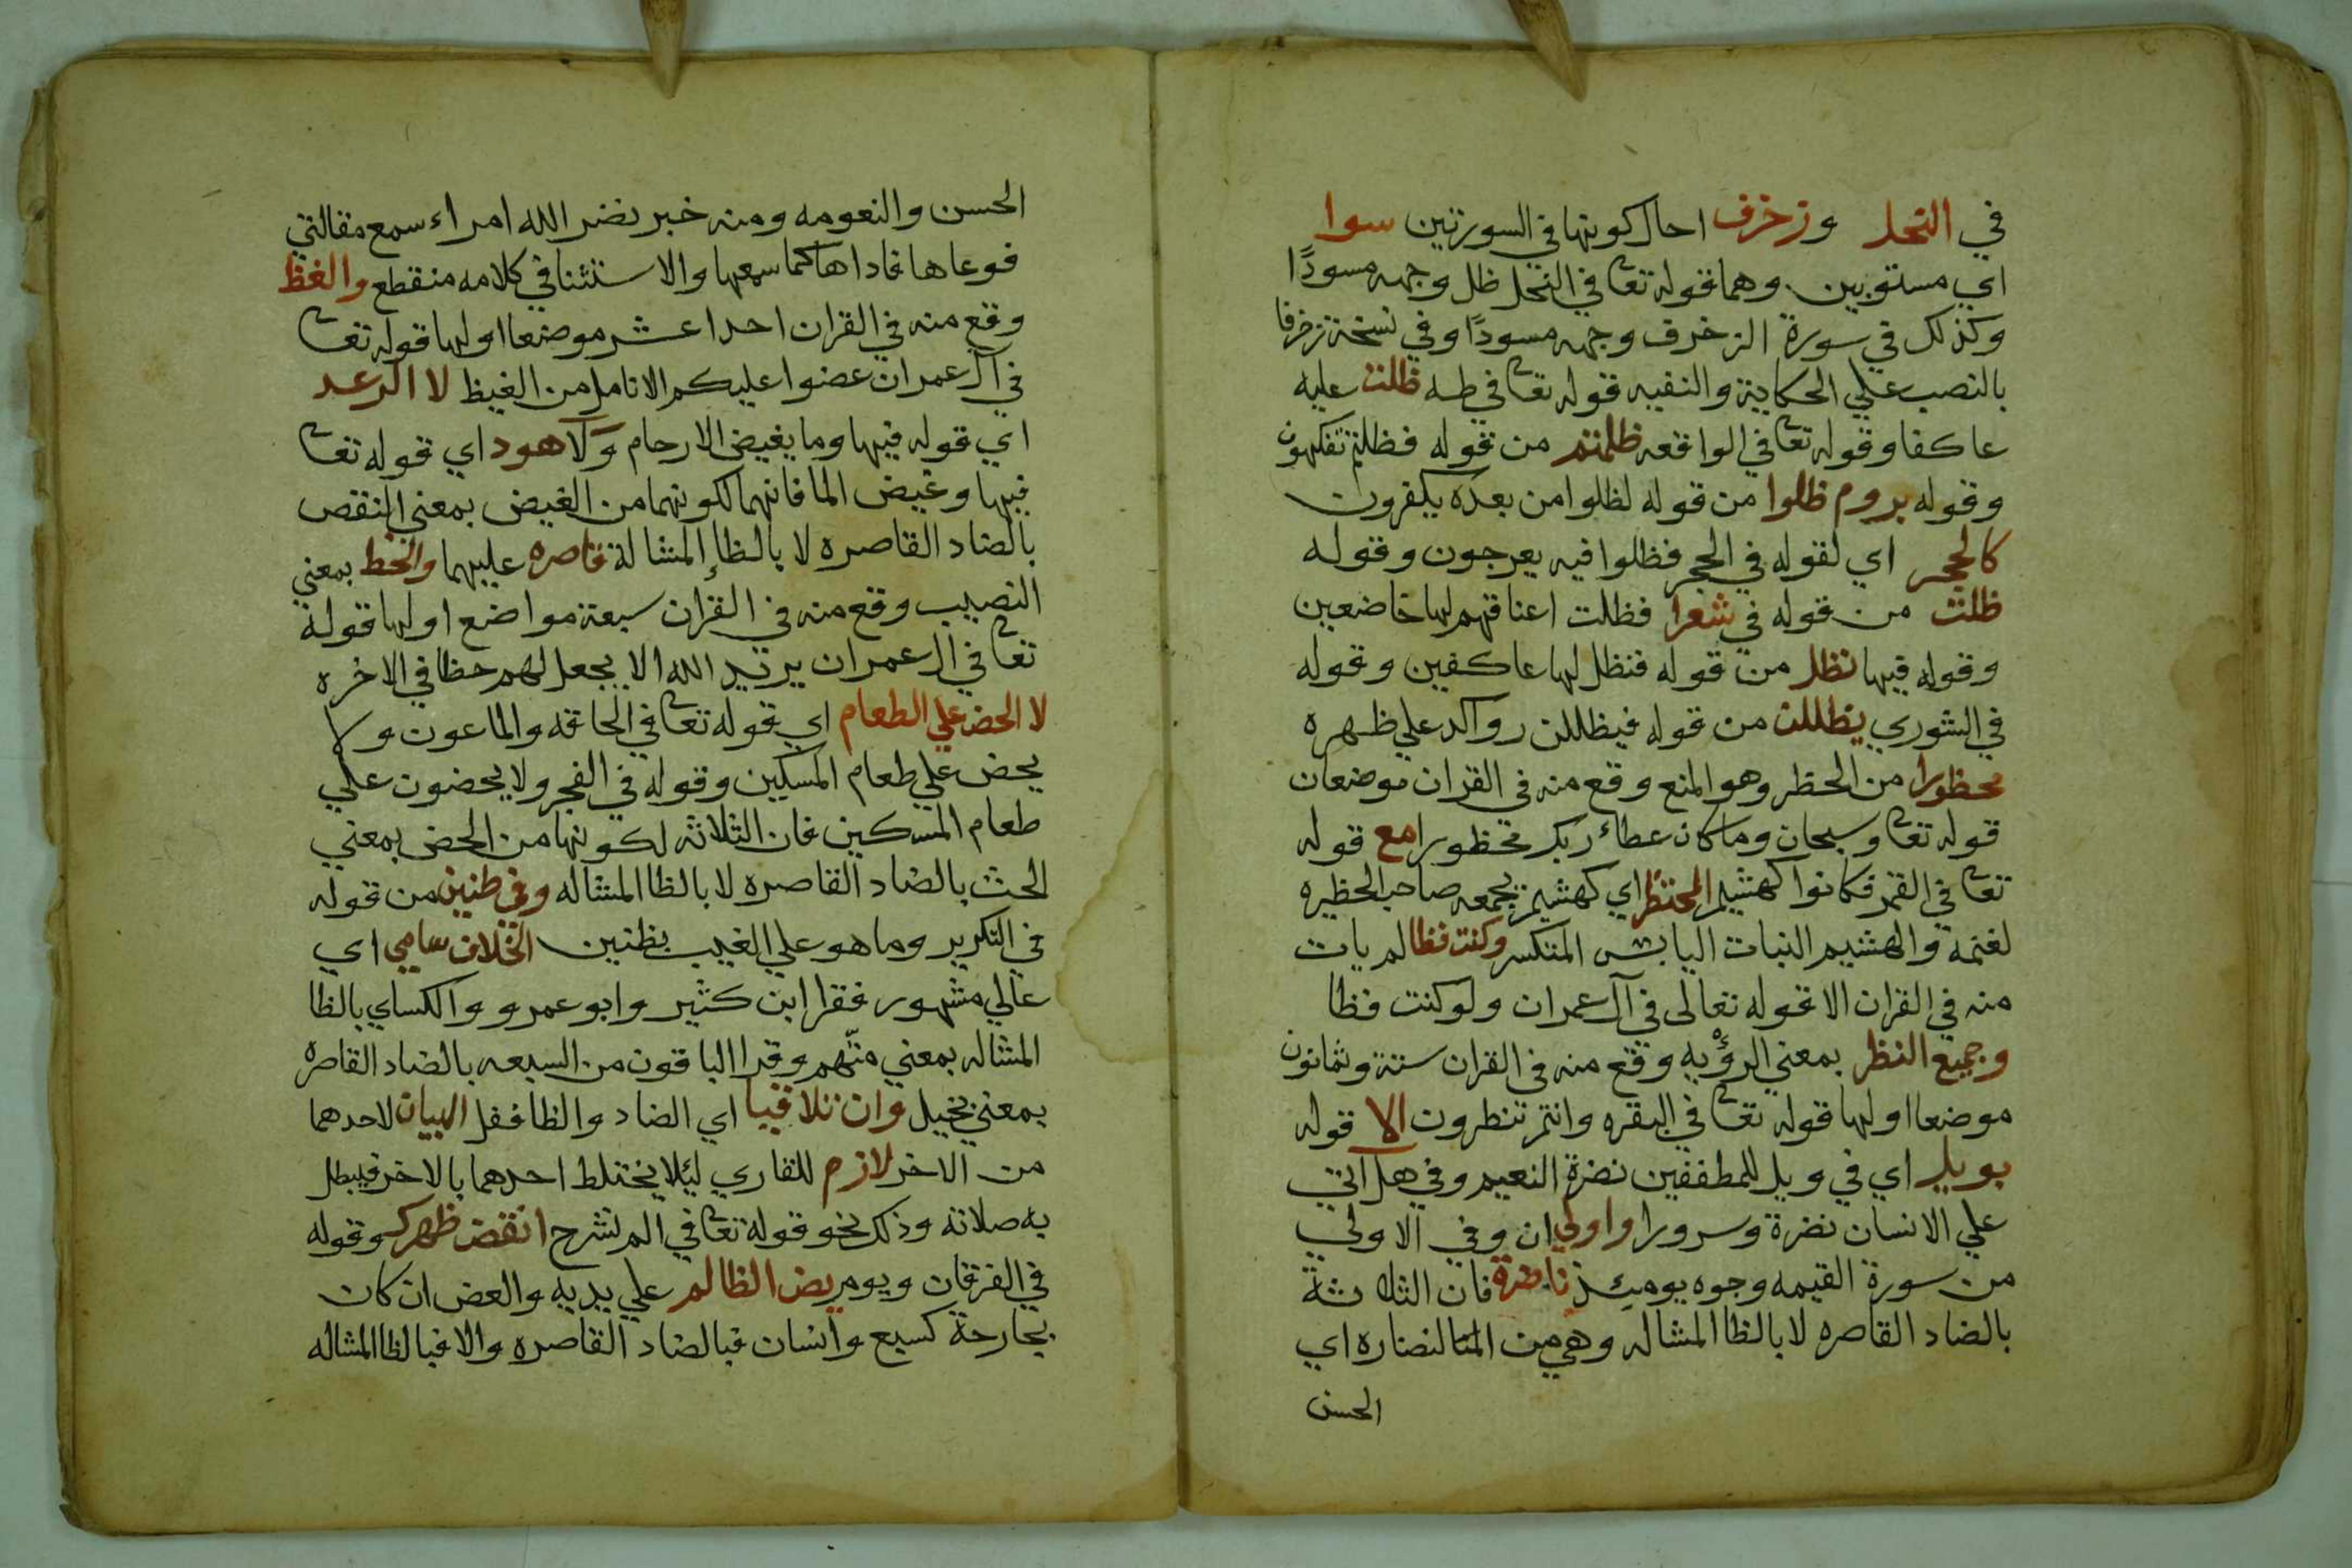 في النحل وزخرف احال كونها في السورتين سوا
اي مستويين وهما قوله تعا في النحل ظل وجهه مسودًا
وكذلك في سورة الزخرف وجهه مسودًا وفي نسخة زخرفا
بالنصب علي الحكاية والنفيه قوله تعا في طه ظلت عليه
عاكفا وقوله تعا في الواقعه ظلمتم من قوله فظلتم تفكهون
وقوله بروم ظلوا من قوله لظلوا من بعده يكفرون
كالحجر اي لقوله في الحجر فظلوا فيه يعرجون وقوله
ظلت من قوله في شعرا فظلت اعناقهم لها خاضعين
وقوله فيها نظل من قوله فنظل لها عاكفين وقوله
في الشوري يظللن من قوله فيظللن رواكد علي ظهره
محظورا من الحظر وهو المنع وقع منه في القران موضعان
قوله تعا وسبحان وما كان عطاء ربك محظورا مع قوله
تعا في القمر فكانوا كهشيم المحتظر اي كهشيم يجمعه صاحب الحظيره
لغنمه والهشيم النبات اليابس المتكسر وكنت فظا لم يات
منه في القران الا قوله تعالى في آل عمران ولو كنت فظا
وجميع النظر بمعني الرؤيه وقع منه في القران ستة وثمانون
موضعا اولها قوله تعا في البقره وانتم تنظرون الا قوله
بويل اي في ويل للمطففين نضرة النعيم وفي هل اتي
علي الانسان نضرة وسرورا واولي ان وفي الاولي
من سورة القيمه وجوه يومئذ ناضرة فان الثلاثة
بالضاد القاصره لا بالظا المشاله وهي من النضاره اي
الحسن
الحسن والنعومه ومنه خبر نضر الله امراء سمع مقالتي
فوعاها فاداها كما سمعها والاستثنا في كلامه منقطع والغظ
وقع منه في القران احدا عشر موضعا اولها قوله تعا
في آل عمران عضوا عليكم الانامل من الغيظ لا الرعد
اي قوله فيها وما يغيض الارحام ولا هود اي قوله تعا
فيها وغيض الما فانهما لكونهما من الغيض بمعني النقص
بالضاد القاصره لا بالظا المشالة قاصره عليهما والحظ بمعني
النصيب وقع منه في القران سبعة مواضع اولها قوله
تعا في ال عمران يريد الله الا يجعل لهم حظا في الاخره
لا الحض علي الطعام اي قوله تعا في الحاقه والماعون ولا
يحض علي طعام المسكين وقوله في الفجر ولا يحضون علي
طعام المسكين فان الثلاثه لكونها من الحض بمعني
الحث بالضاد القاصره لا بالظا المشاله وفي ظنين من قوله
في التكرير وما هو علي الغيب بظنين الخلاف سامي اي
عالي مشهور فقرا ابن كثير وابو عمرو والكساي بالظا
المشاله بمعني متّهم وقرا الباقون من السبعه بالضاد القاصره
بمعني بخيل وان تلاقيا اي الضاد والظا فقل البيان لاحدهما
من الاخر لازم للقاري ليلا يختلط احدهما بالاخر فيبطل
به صلاته وذلك نحو قوله تعا في الم نشرح انقض ظهرك وقوله
في الفرقان ويوم يض الظالم علي يديه والعض ان كان
بجارحة كسبع وانسان فبالضاد القاصره والا فبالظا المشاله